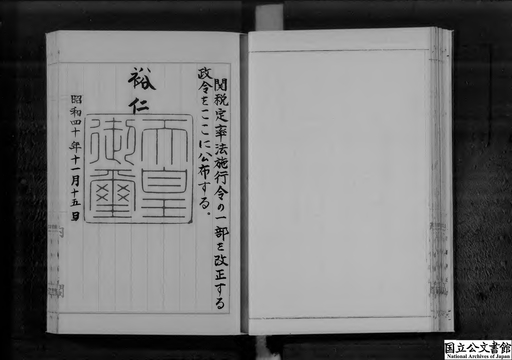 関税定率法施行令の一部を改正する
政令をここに公布する。
裕仁
天皇
御璽
昭和四十年十一月十五日
国立公文書館
National Archives of Japan